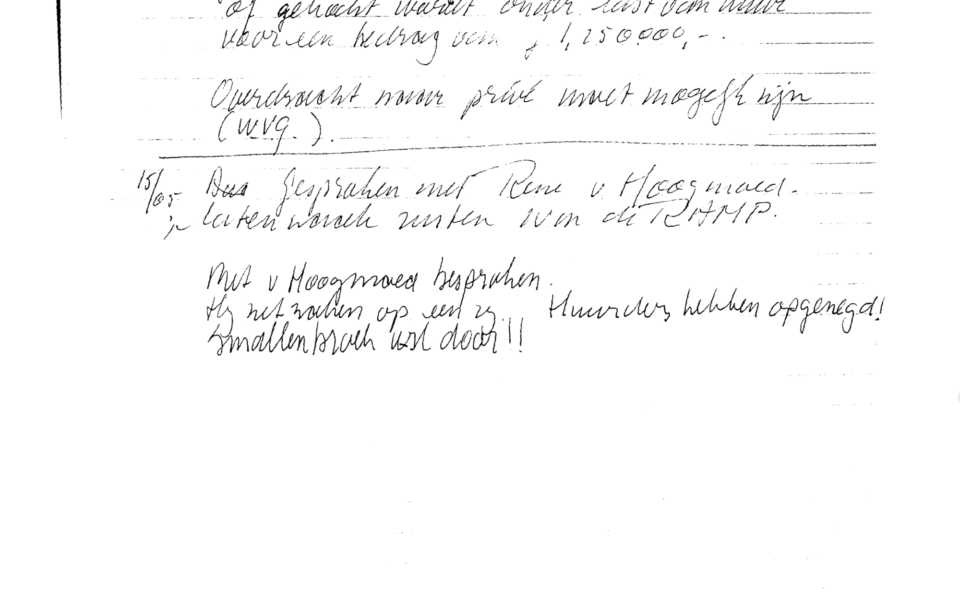 of gekocht wordt onder last van huur
voor een bedrag van ƒ 1,250.000,-.
Overdracht naar privé moet mogelijk zijn
(WVG.).
15/05 Gesproken met Rene v Hoogmoed.
;- laten zoeken rusten ivm de RAMP.
Met v Hoogmoed besproken.
Hij zet zaken op een rij... Huurders hebben opgezegd!
Smallenbroek wil door!!